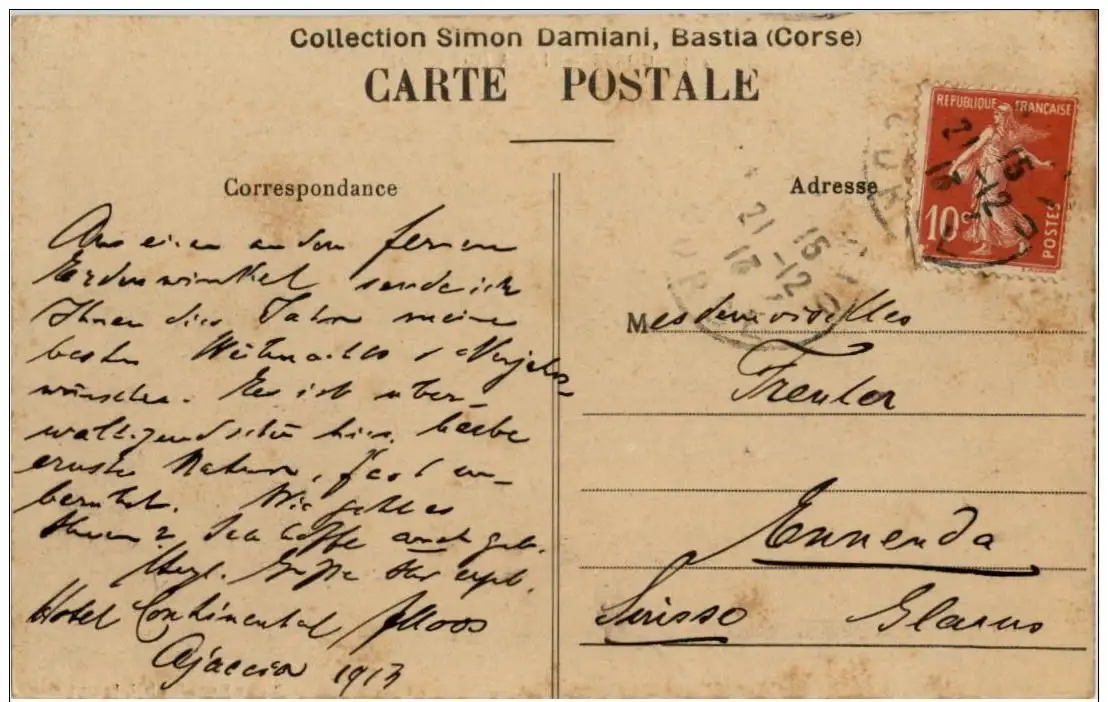 Collection Simon Damiani, Bastia (Corse)
CARTE POSTALE
Correspondance
Aus einem andern fernen
Erdenwinkel sende ich
Ihnen dies Jahr meine
besten Weihnachts & Neujahrs
wünsche. Es ist über-
wältigend schön hier. herbe
ernste Natur, fast un-
berührt. Wie geht es
Ihnen? Ich hoffe auch gut.
Herzl. Grüsse Ihr
Hotel Continental
Ajaccio 1913
Adresse
REPUBLIQUE FRANÇAISE
10c
POSTES
15
21 -12
13
15
21 -12
13
Mesdemoiselles
Trenler
Ennenda
Glarus